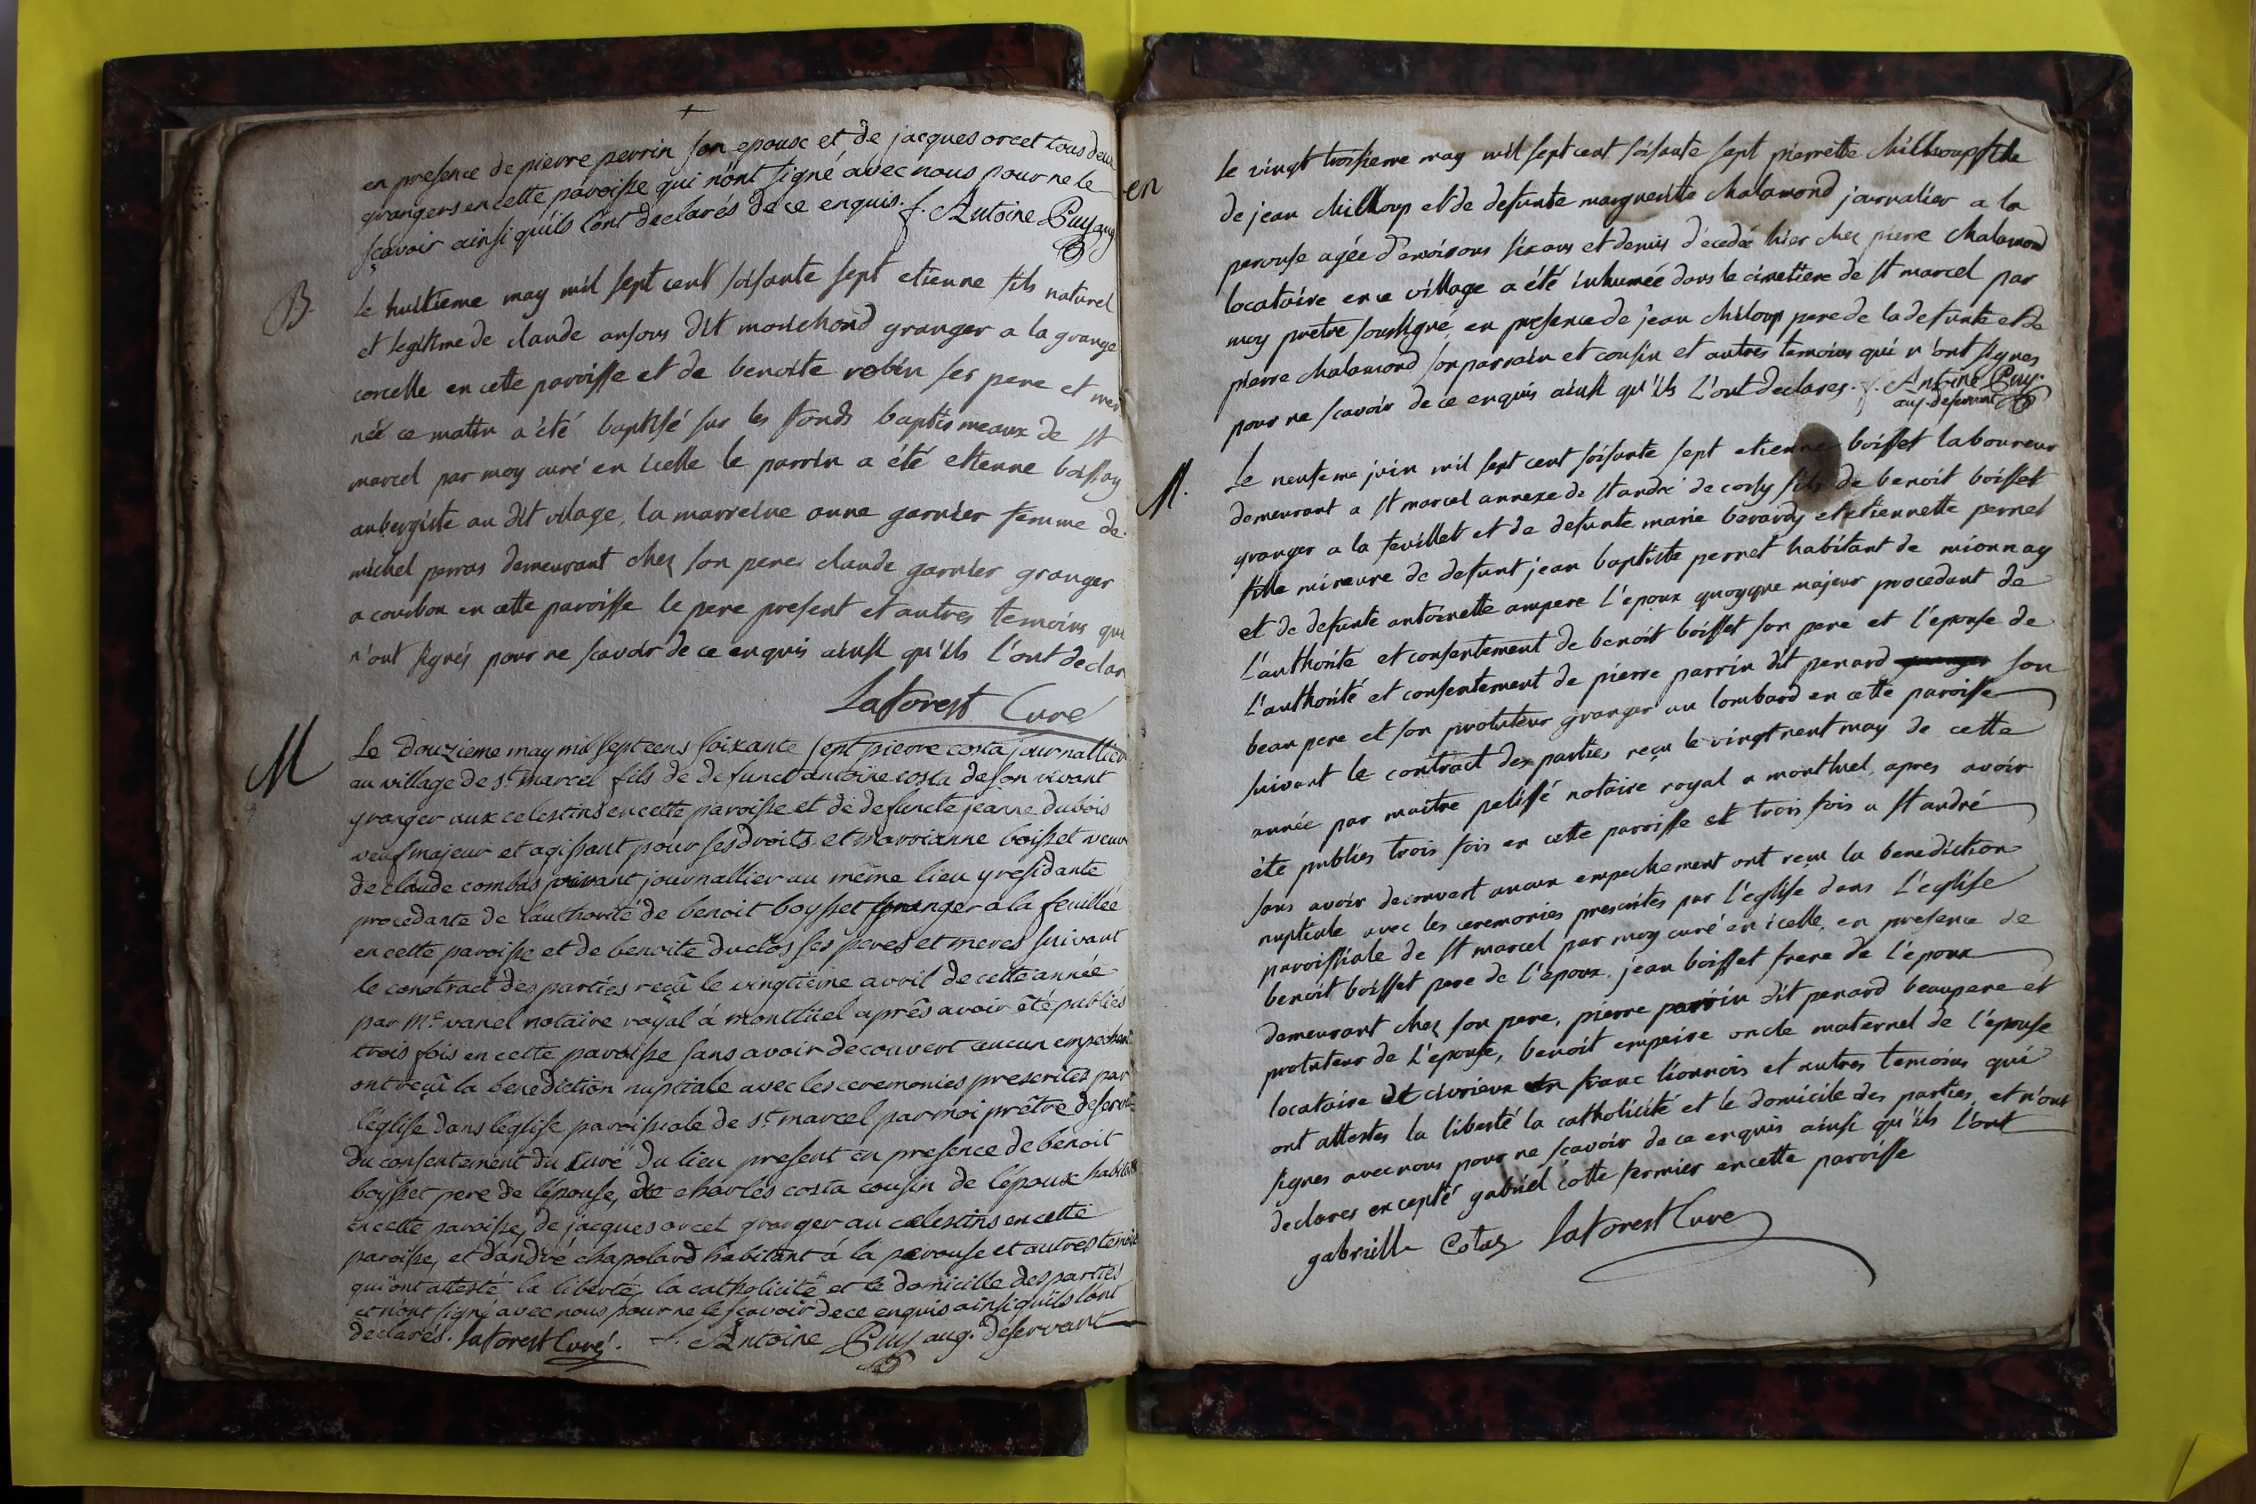 +
en presence de pierre perrin son epouse et de jacques orcet tous deux
grangers en cette paroisse qui n'ont signé avec nous pour ne le
sçavoir ainsi quils l'ont declarés de ce enquis. f. Antoine Puy aug
B.
Le huitieme may mil sept cent soisante sept etienne fils naturel
et legitime de claude ansous dit monichond granger a la grange
corcelle en cette paroisse et de benoite robin ses pere et mere
née ce matin a été baptisé sur les fonds baptismeaux de st
marcel par moy curé en icelle le parrin a été etienne boissay
aubergiste au dit vilage, la marreine anne garnier femme de
michel perras demeurant chez son pere claude garnier granger
a courbon en cette paroisse le pere present et autres temoins qui
n'ont signés pour ne scavoir de ce enquis ainsi qu'ils l'ont declar
Laforest Curé
M
Le douzieme may mil sept cens soixante sept pierre costa journallier
au village de st marcel fils de defunct antoine costa de son vivant
granger aux celestins en cette paroisse et de defuncte jeanne dubois
veuf majeur et agissant pour ses droits et marianne boisset veuve
de claude combas vivant journallier au même lieu y residante
procedante de l'authorité de benoit boysset granger a la feuillée
en cette paroisse et de benoite duclos ses peres et meres suivant
le conctract des parties reçû le vingtieme avril de cette année
par me vanel notaire royal á montlüel aprês avoir êté publiés
trois fois en cette paroisse sans avoir decouvert aucun empechem
ont reçû la benediction nuptiale avec les ceremonies prescrites par
l'église dans leglise paroissiale de st marcel par moi prêtre deservant
du consentement du curé du lieu present en presence de benoit
boysset pere de l'épouse, de charles costa cousin de l'époux habitant
en cette paroisse, de jacques orcet granger au celestins en cette
paroisse, et d'andré chapolard habitant á la perouse et autres temoins
qui ont attesté la liberté, la catholicité et le domicille des parties
et n'ont signé avec nous pour ne le sçavoir de ce enquis ainsi quils l'ont
declarés. Laforest Curé. f. Antoine Puy aug. déservant
en
le vingt troisieme may mil sept cent soisante sept pierrette chilloup fille
de jean chilloup et de defunte margueritte chalamond journalier a la
perouse agée d'environs six ans et demis décedée hier chez pierre chalamond
locataire en ce village a été inhumée dans le cimetiere de st marcel par
moy prêtre soussigné, en presence de jean chiloup pere de la defunte et de
pierre chalamond son parrain et cousin et autres temoins qui n'ont signes
pour ne scavoir de ce enquis ainsi qu'ils l'ont declares. f. Antoine Puy.
aug. deservant
M.
Le neufieme juin mil sept cent soisante sept etienne boisset laboureur
demeurant a st marcel annexe de st andré de corcy fils de benoit boisset
granger a la feuillet et de defunte marie berardy et etiennette pernet
fille mineure de defunt jean baptiste pernet habitant de mionnay
et de defunte antoinette ampere l'epoux quoyque majeur procedant de
l'authorité et consentement de benoit boisset son pere et l'épouse de
l'authorité et consentement de pierre parrin dit penard granger son
beau pere et son protuteur granger au lombard en cette paroisse
suivant le contract des parties reçu le vingt neuf may de cette
année par maitre pelissé notaire royal a montluel, apres avoir
été publiés trois fois en cette parroisse et trois fois a st andré
sans avoir decouvert aucun empechement ont reçu la benediction
nuptiale avec les ceremonies prescrites par l'eglise dans l'eglise
paroissiale de st marcel par moy curé en icelle, en presence de
benoit boisset pere de l'epoux. jean boisset frere de l'époux
demeurant chez son pere, pierre parrin dit penard beaupere et
protuteur de l'epouse, benoit empeire oncle maternel de l'epouse
locataire de civrieux en franc lionnois et autres temoins qui
ont attestes la liberté la catholicité et le domicile des parties, et n'ont
signes avec nous pour ne scavoir de ce enquis ainsi qu'ils l'ont
declares excepté gabriel côtte fermier en cette paroisse
gabrielle Cotaz Laforest Curé